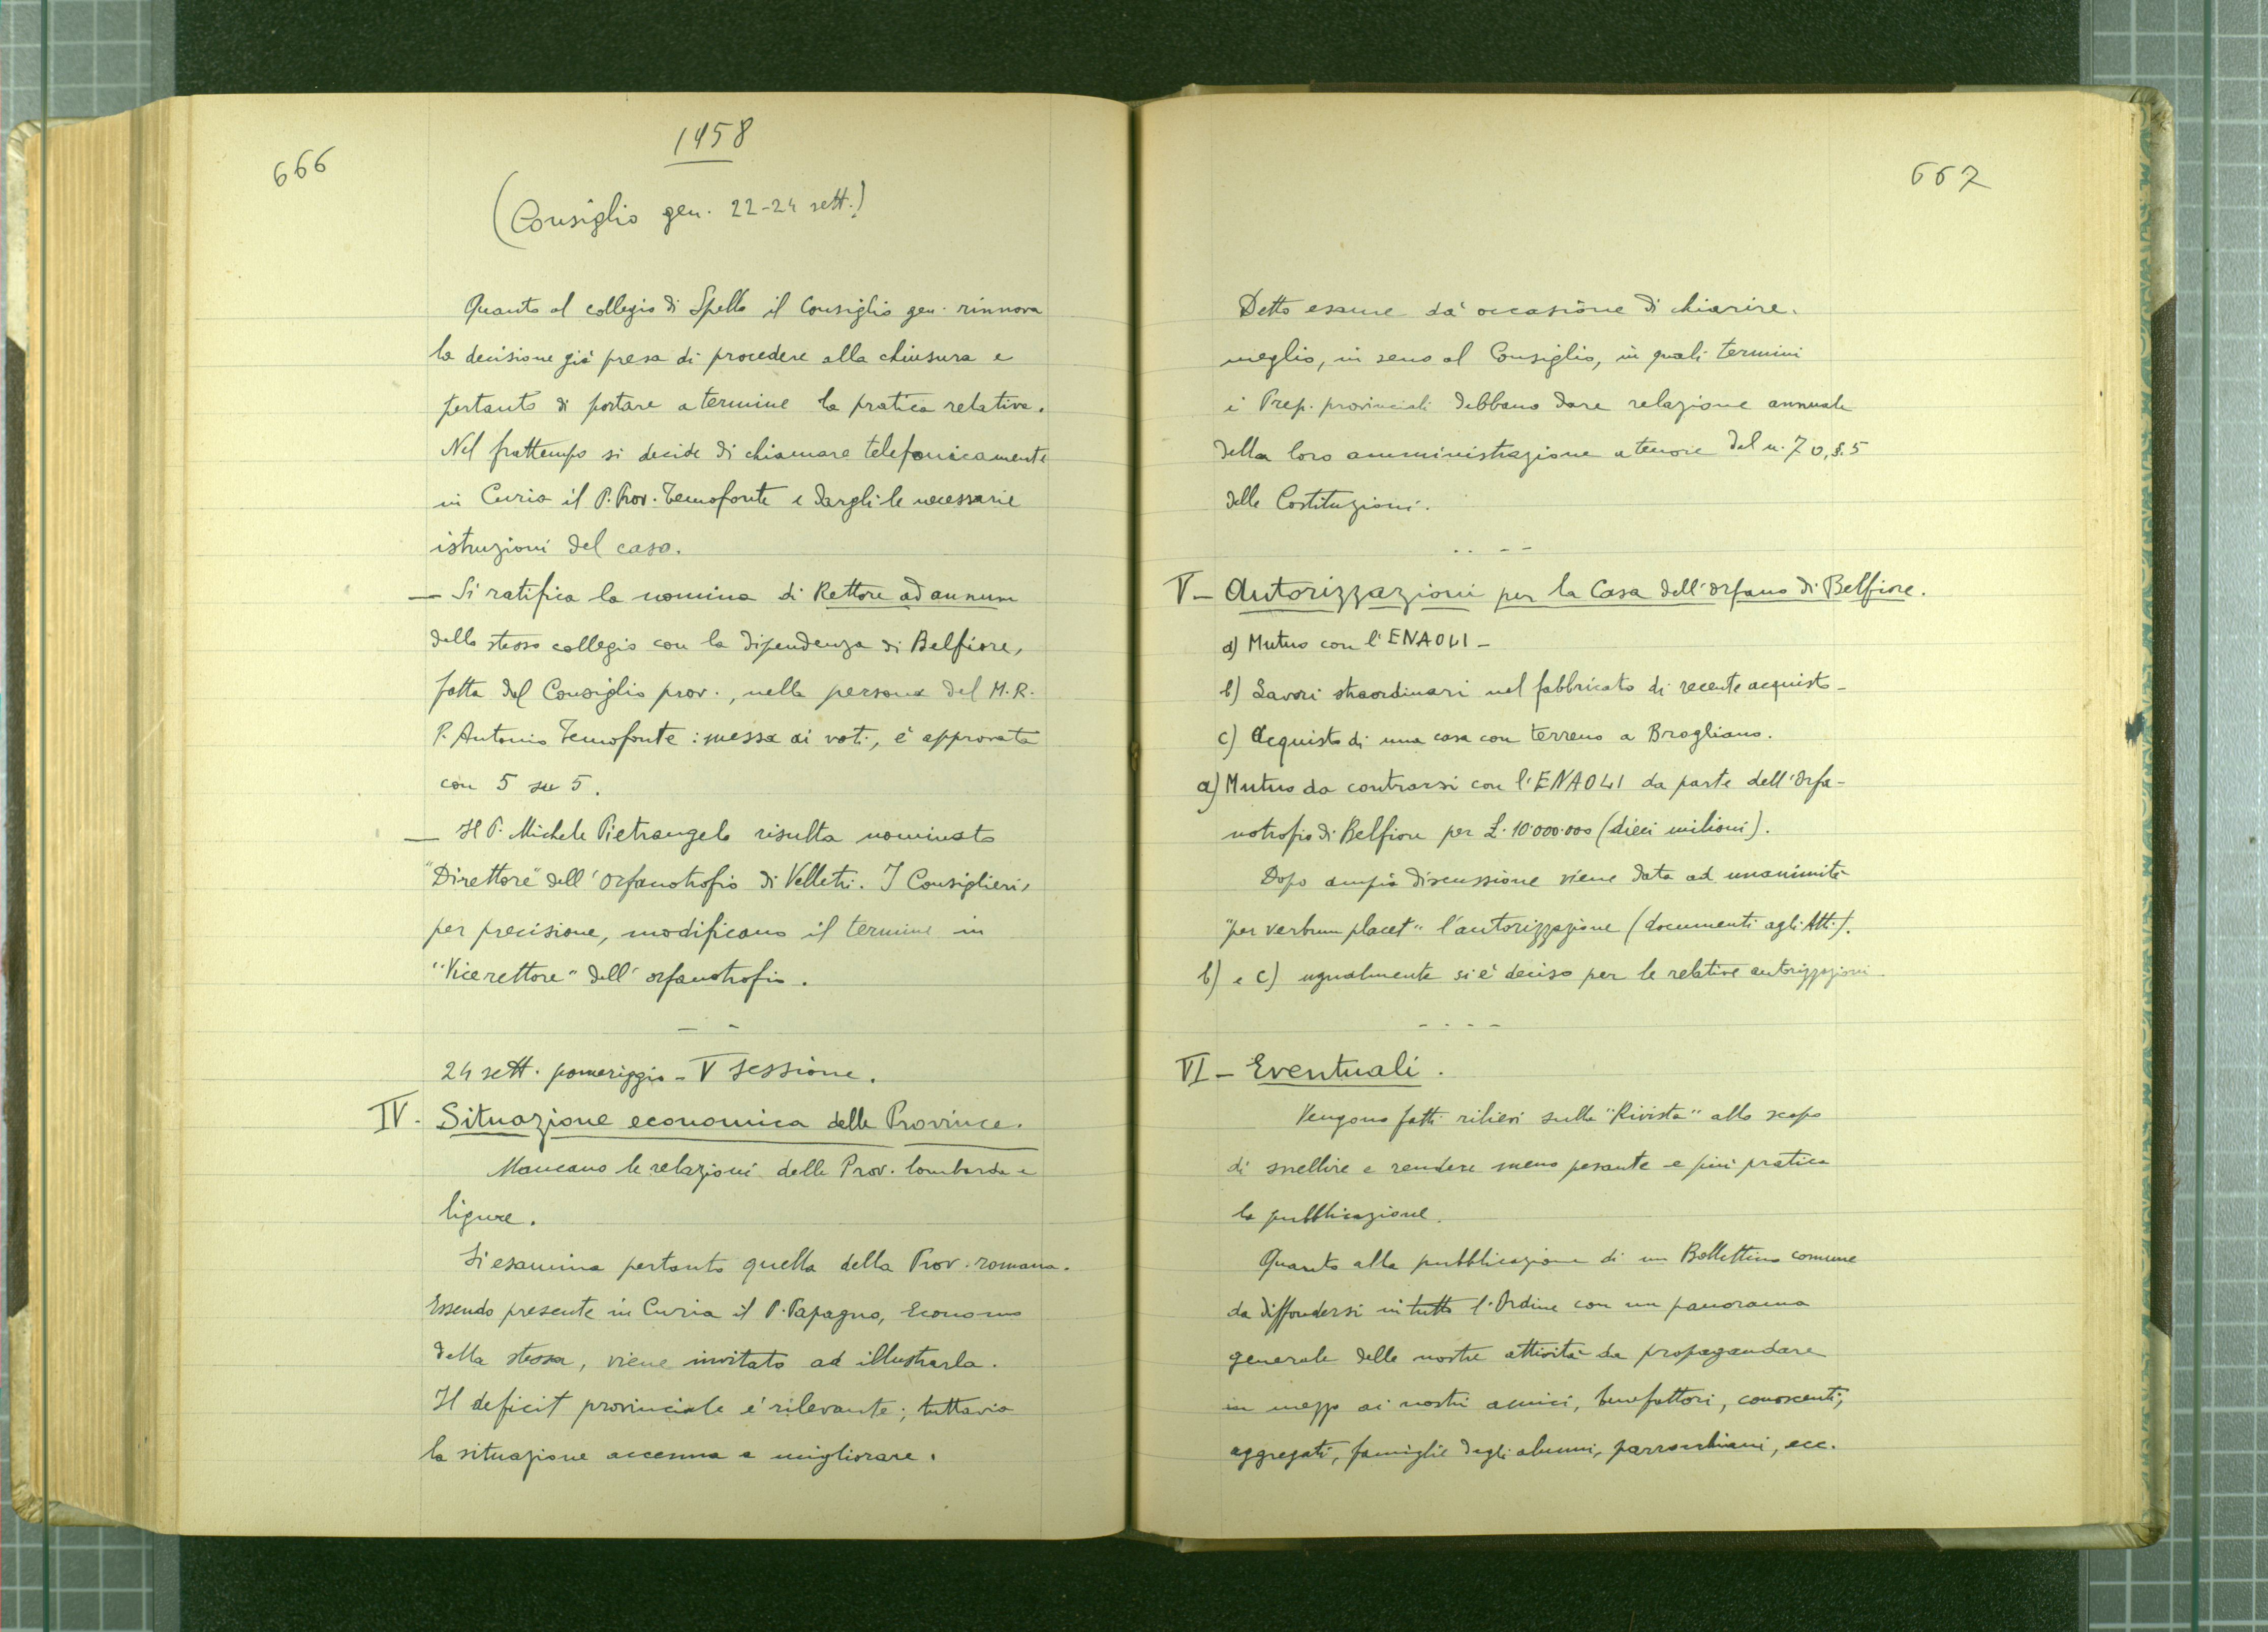 666
1958
(Consiglio gen. 22-24 sett.)
Quanto al collegio di Spello il Consiglio gen. rinnova
la decisione già presa di procedere alla chiusura e
pertanto di portare a termine la pratica relativa.
Nel frattempo si decide di chiamare telefonicamente
in Curia il P. Prov. Temofonte e dargli le necessarie
istruzioni del caso.
— Si ratifica la nomina di Rettore ad annum
dello stesso collegio con la dipendenza di Belfiore,
fatta dal Consiglio prov., nella persona del M.R.
P. Antonio Temofonte: messa ai voti, è approvata
con 5 su 5.
— Il P. Michele Pietrangelo risulta nominato
"Direttore" dell'orfanotrofio di Velletri. I Consiglieri,
per precisione, modificano il termine in
"Vicerettore" dell'orfanotrofio.
— -
24 sett. pomeriggio - V sessione.
IV. Situazione economica delle Province.
Mancano le relazioni delle Prov. lombarda e
ligure.
Si esamina pertanto quella della Prov. romana.
Essendo presente in Curia il P. Papagno, Economo
della stessa, viene invitato ad illustrarla.
Il deficit provinciale è rilevante; tuttavia
la situazione accenna a migliorare.
667
Detto esame dà occasione di chiarire.
meglio, in seno al Consiglio, in quali termini
i Prep. provinciali debbano dare relazione annuale
della loro amministrazione a tenore del n. 70, §. 5
delle Costituzioni.
. . - -
V - Autorizzazioni per la Casa dell'orfano di Belfiore.
a) Mutuo con l'ENAOLI -
b) Lavori straordinari nel fabbricato di recente acquisto -
c) Acquisto di una casa con terreno a Brogliano.
a) Mutuo da contrarsi con l'ENAOLI da parte dell'Orfa-
notrofio di Belfiore per £. 10.000.000 (dieci milioni).
Dopo ampia discussione viene data ad unanimità
"per verbum placet" l'autorizzazione (documenti agli Atti).
b) e c) ugualmente si è deciso per le relative autorizzazioni
- - - -
VI - Eventuali.
Vengono fatti rilievi sulla "Rivista" allo scopo
di snellire e rendere meno pesante e più pratica
la pubblicazione.
Quanto alla pubblicazione di un Bollettino comune
da diffondersi in tutto l'Ordine con un panorama
generale delle nostre attività da propagandare
in mezzo ai nostri amici, benefattori, conoscenti,
aggregati, famiglie degli alunni, parrocchiani, ecc.